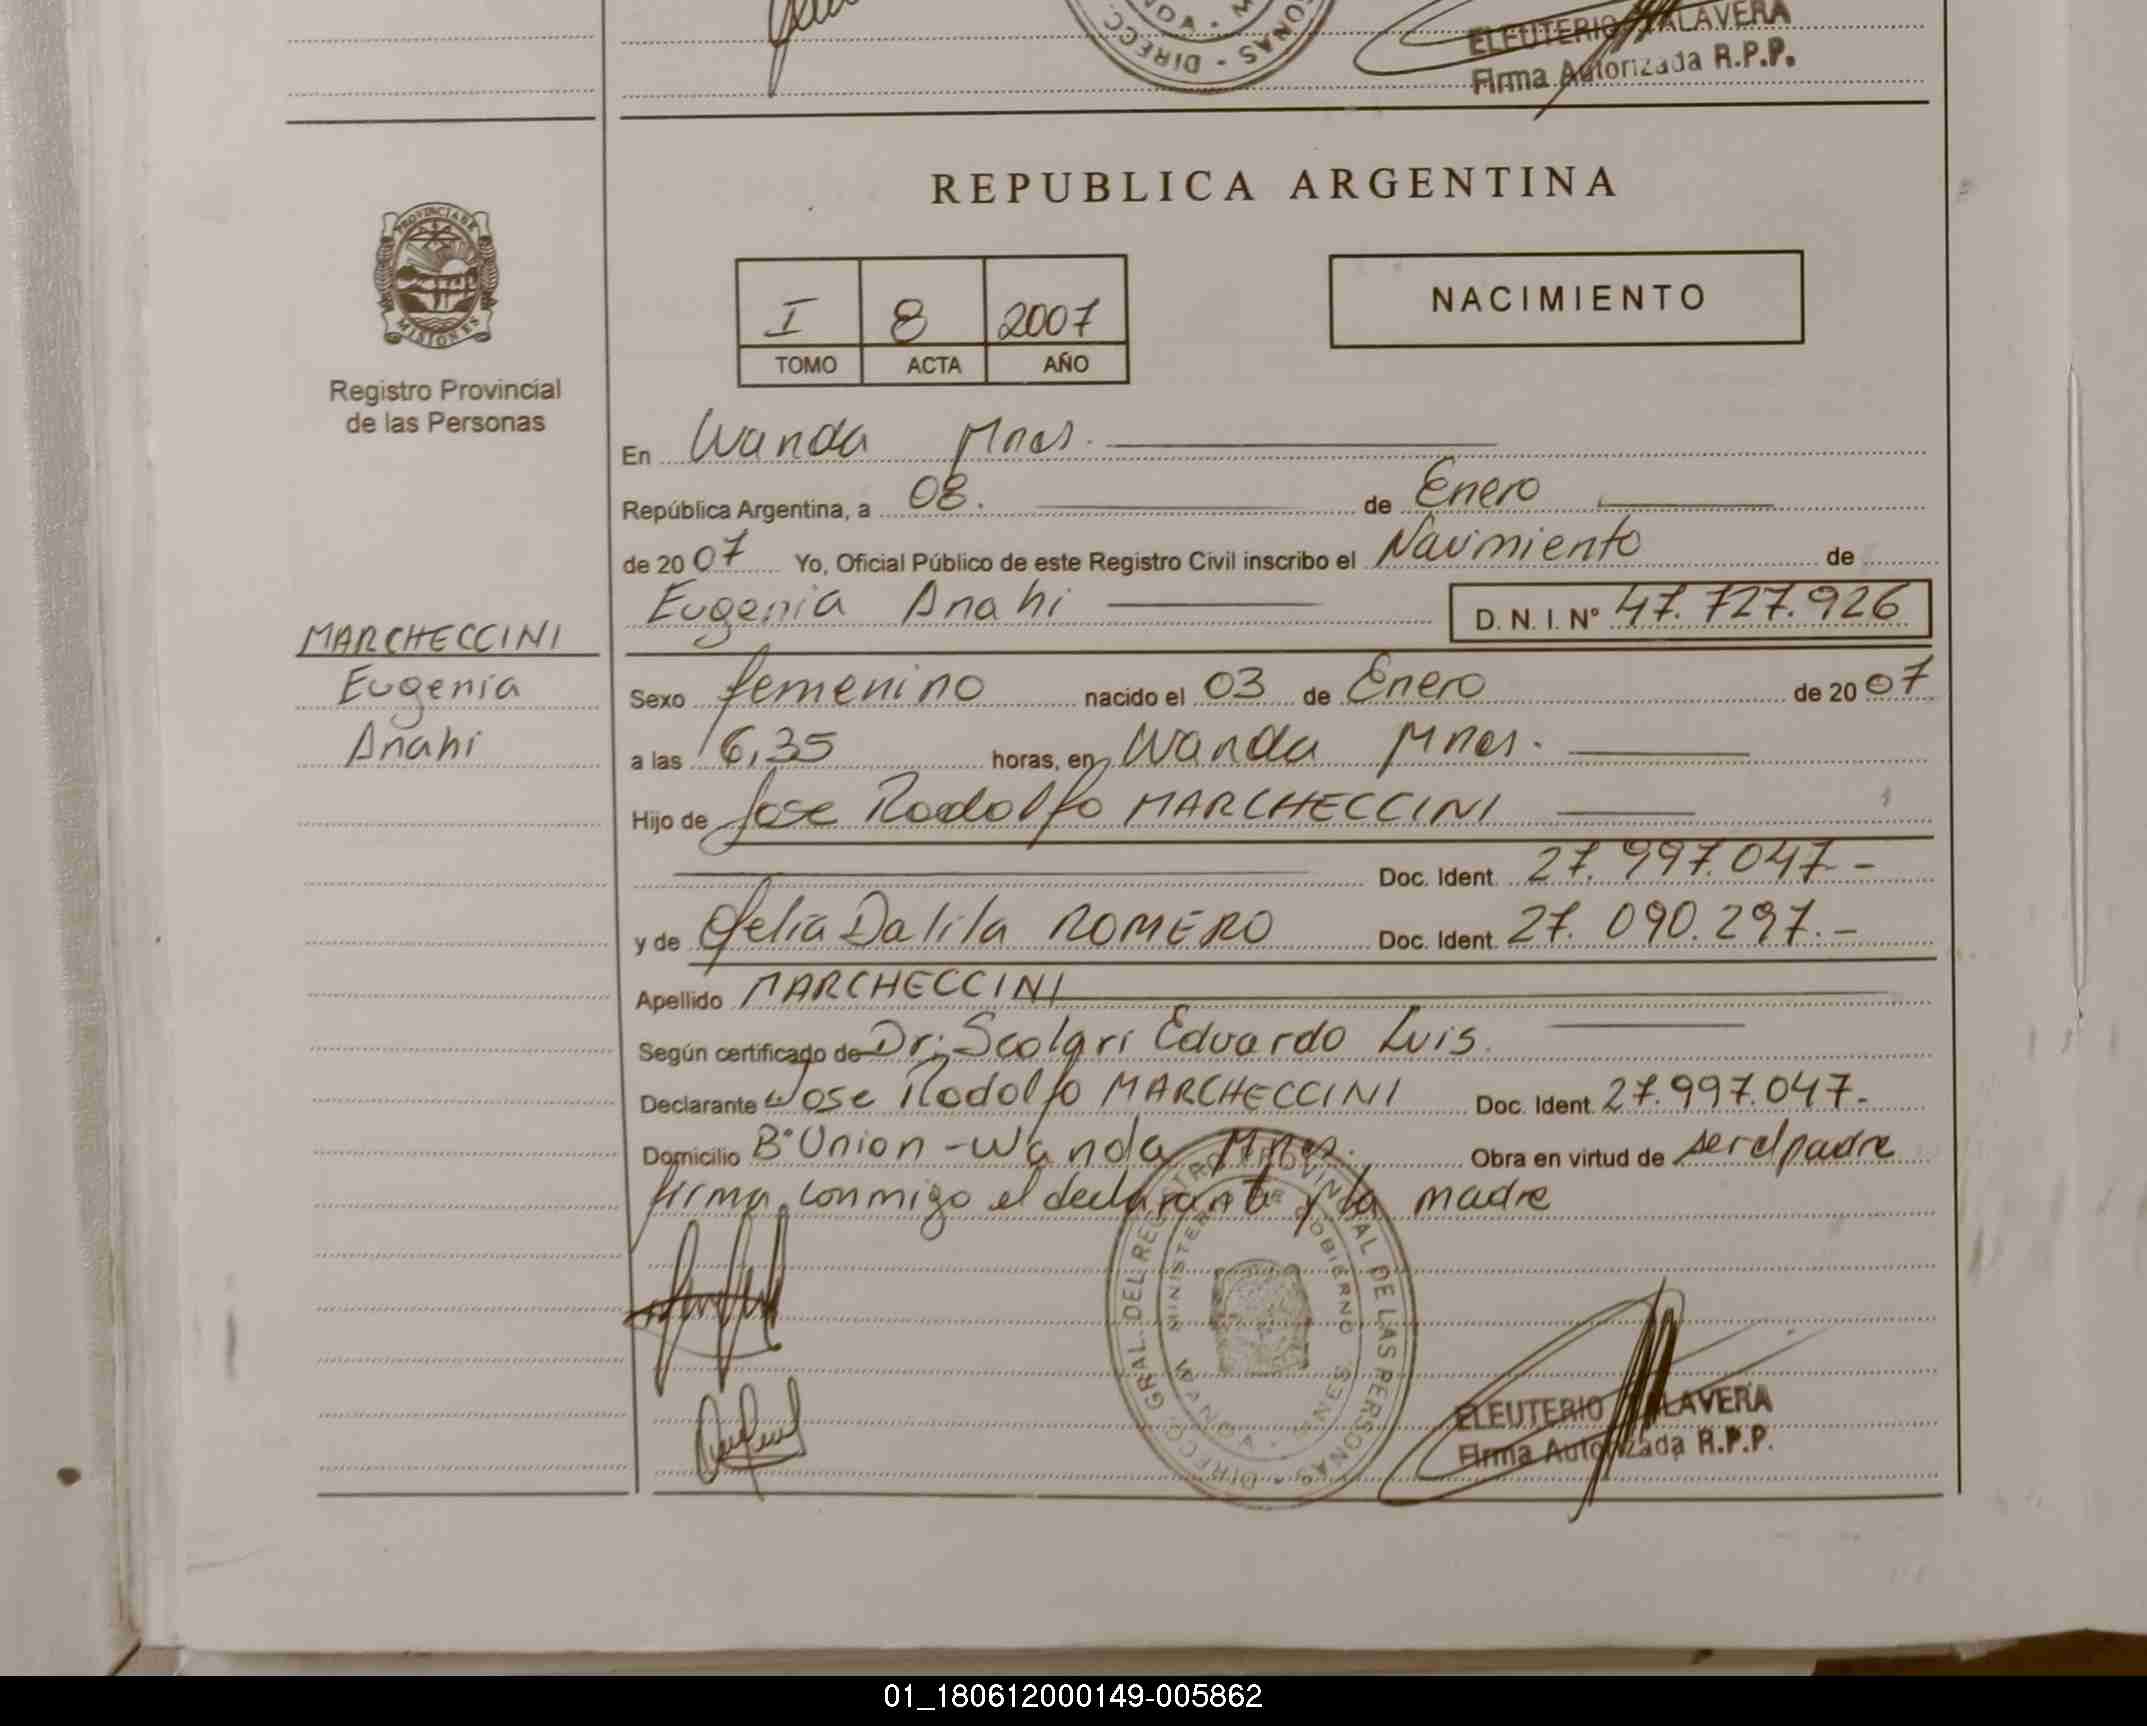 ELEUTERIO TALAVERA
Firma Autorizada R.P.P.
REPUBLICA ARGENTINA
PROVINCIA DE
MISIONES
Registro Provincial
de las Personas
I 8 2007
TOMO ACTA AÑO
NACIMIENTO
En Wanda Mnes.
República Argentina, a 08. de Enero
de 2007 Yo, Oficial Público de este Registro Civil inscribo el Nacimiento de
Eugenia Anahi D. N. I. Nº 47.727.926
MARCHECCINI
Eugenia
Anahi
Sexo femenino nacido el 03 de Enero de 2007
a las 16,35 horas, en Wanda Mnes.
Hijo de Jose Rodolfo MARCHECCINI
Doc. Ident. 27.997.047.-
y de Ofelia Dalila ROMERO Doc. Ident. 27.090.297.-
Apellido MARCHECCINI
Según certificado de Dr. Scolari Eduardo Luis.
Declarante Jose Rodolfo MARCHECCINI Doc. Ident. 27.997.047.-
Domicilio Bº Union - Wanda Mnes. Obra en virtud de ser el padre
firma conmigo el declarante y la madre
DIRECC. GRAL. DEL REGISTRO PROVINCIAL DE LAS PERSONAS
MINISTERIO DE GOBIERNO
WANDA - MNES.
ELEUTERIO TALAVERA
Firma Autorizada R.P.P.
01_180612000149-005862